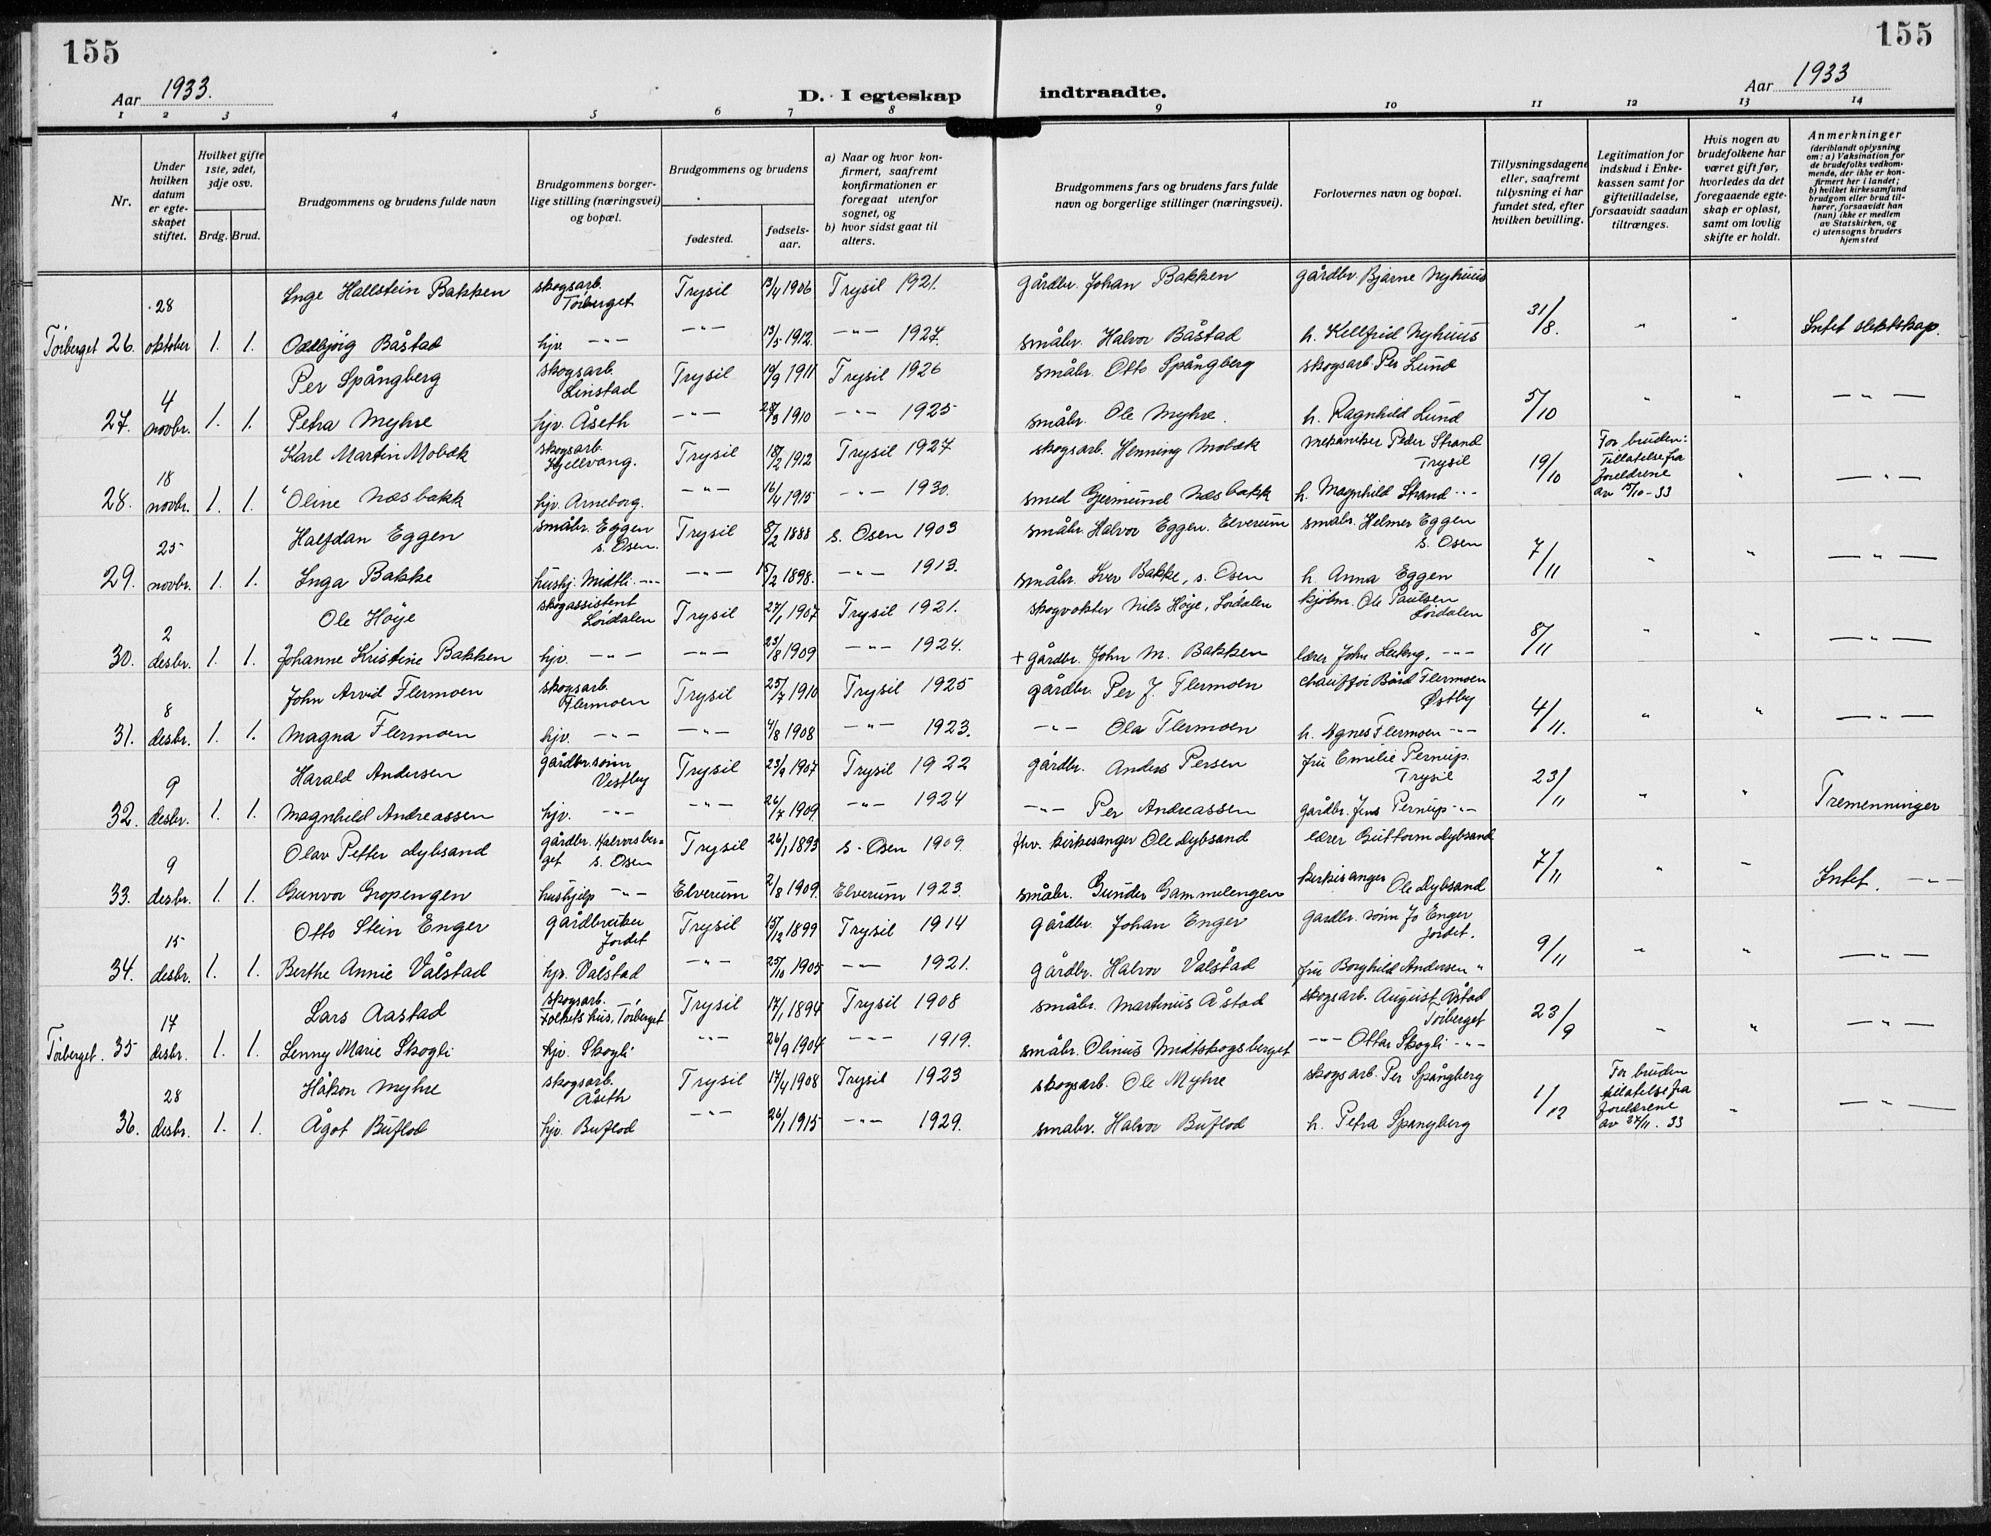 155
155
Aar 1933.
D. I egteskap indtraadte.
Aar 1933
1 2 3 4 5 6 7 8 9 10 11 12 13 14
Nr.
Under hvilken datum er egteskapet stiftet.
Hvilket gifte 1ste, 2det, 3dje osv.
Brdg. Brud.
Brudgommens og brudens fulde navn
Brudgommens borgerlige stilling (næringsvei) og bopæl.
Brudgommens og brudens
fødested.
fødselsaar.
a) Naar og hvor konfirmert, saafremt konfirmationen er foregaat utenfor sognet, og
b) hvor sidst gaat til alters.
Brudgommens fars og brudens fars fulde navn og borgerlige stillinger (næringsvei).
Forlovernes navn og bopæl.
Tillysningsdagene eller, saafremt tillysning ei har fundet sted, efter hvilken bevilling.
Legitimation for indskud i Enkekassen samt for giftetilladelse, forsaavidt saadan tiltrænges.
Hvis nogen av brudefolkene har været gift før, hvorledes da det foregaaende egteskap er opløst, samt om lovlig skifte er holdt.
Anmerkninger (deriblandt oplysning om: a) Vaksination for de brudefolks vedkommende, der ikke er konfirmert her i landet; b) hvilket kirkesamfund brudgom eller brud tilhører, forsaavidt han (hun) ikke er medlem av Statskirken, og c) utensogns bruders hjemsted
28 Inge Hallstein Bakken skogsarb. Törberget Trysil 1906 Trysil 1921. gårdbr. Johan Bakken gårdbr. Bjarne Nyhuus 31/8.
Törberget 26. oktober 1. 1. Oddbjörg Båstad hjv. -"- -"- 13/5 1912. -"- 1927. småbr. Halvor Båstad h. Kellfrid Nyhuus " " Intet slektskap.
4 Per Spångberg skogsarb. Linstad Trysil 1911 Trysil 1926 småbr. Otto Spångberg skogsarb Per Lund 5/10
27. novbr. 1. 1. Petra Myhre hjv. Åseth -"- 1910 -"- 1925 småbr. Ole Myhre. h. Ragnhild Lund " " -"-
18 Karl Martin Mobæk skogsarb. Kjellvang. Trysil 18/2 1912 Trysil 1927 skogsarb. Henning Mobæk mekaniker Peder Strand Trysil 19/10 For bruden: Tillatelse fra foreldrene
28. novbr. 1. 1. Oline Næsbakk hjv. Arneborg. -"- 16/4 1915 -"- 1930. smed Gjermund Næsbakk h. Magnhild Strand -"- av 15/10-33 " -"-
25 Halfdan Eggen småbr. Eggen s. Osen. Trysil 8/2 1888 s. Osen 1903 småbr. Halvor Eggen. Elverum småbr. Helmer Eggen s. Osen 7/11
29. novbr. 1. 1. Inga Bakke hushj. Midtli. -"- -"- 15/2 1898. -"- 1913. småbr. Iver Bakke, s. Osen h. Anna Eggen " " -"-
2 Ole Höye skogassistent Lördalen Trysil 27/1 1907 Trysil 1921. skogvokter Nils Höye, Lördalen kjöbm. Ole Paulsen Lördalen 8/11
30. desbr. 1. 1. Johanne Kristine Bakken hjv. -"- -"- 23/8 1909 -"- 1924. + gårdbr. John M. Bakken lærer John -"- " " -"-
8 John Arvid Flermoen skogsarb. Flermoen Trysil 25/7 1910 Trysil 1925 gårdbr. Per J. Flermoen chafför Bård Flermoen Østby 4/11.
31. desbr. 1. 1. Magna Flermoen hjv. -"- -"- 4/8 1908 -"- 1923. -"- Ola Flermoen h. Agnes Flermoen -"- " " -"-
9 Harald Andersen gårdbr.sönn Vestby Trysil 23/9 1907 Trysil 1922 gårdbr. Anders Persen fru Emelie Pernup. Trysil 23/11
32. desbr. 1. 1. Magnhild Andreassen hjv. -"- -"- 26/7 1909. -"- 1924 -"- Per Andreassen gårdbr. Jens Pernup -"- " " Tremenninger
9 Olav Petter Dybsand gårdbr. Halvorsberget s. Osen Trysil 26/1 1893 S. Osen 1909 fhv. kirkesanger Ole Dybsand lærer Guttorm Dybsand 7/11
33. desbr. 1. 1. Gunvor Gropengen hushjelp -"- Elverum 2/8 1909. Elverum 1923. småbr. Gunder Gammelengen kirkesanger Ole Dybsand " " Intet. -"-
15 Otto Stein Enger gårdbruker Jordet Trysil 15/12 1899 Trysil 1914 gårdbr. Johan Enger gardbr. sönn Jo Enger Jordet. 9/11
34. desbr. 1. 1. Berthe Annie Vålstad hjv. Vålstad -"- 25/10 1905 -"- 1921. gårdbr. Halvor Valstad fru Borghild Andersen " " " -"-
17 Lars Aastad skogsarb. Folkets hus, Törberget Trysil 17/1 1894 Trysil 1908 småbr. Martinus Åstad skogsarb. August Åstad Törberget 23/9
Törberget. 35 desbr. 1. 1. Lenny Marie Skogli hjv. Skogli -"- 26/9 1904 -"- 1919. småbr. Olinus Midtskogsberget -"- Ottar Skogli -"- " " -"-
28 Håkon Myhre skogsarb. Åseth Trysil 17/4 1908 Trysil 1923 skogsarb. Ole Myhre skogsarb. Per Spångberg 1/12 For bruden tillatelse fra foreldrene
36. desbr. 1. 1. Ågot Buflod hjv. Buflod -"- 26/1 1915 -"- 1929. småbr. Halvor Buflod h. Petra Spangberg av 11.33 " -"-